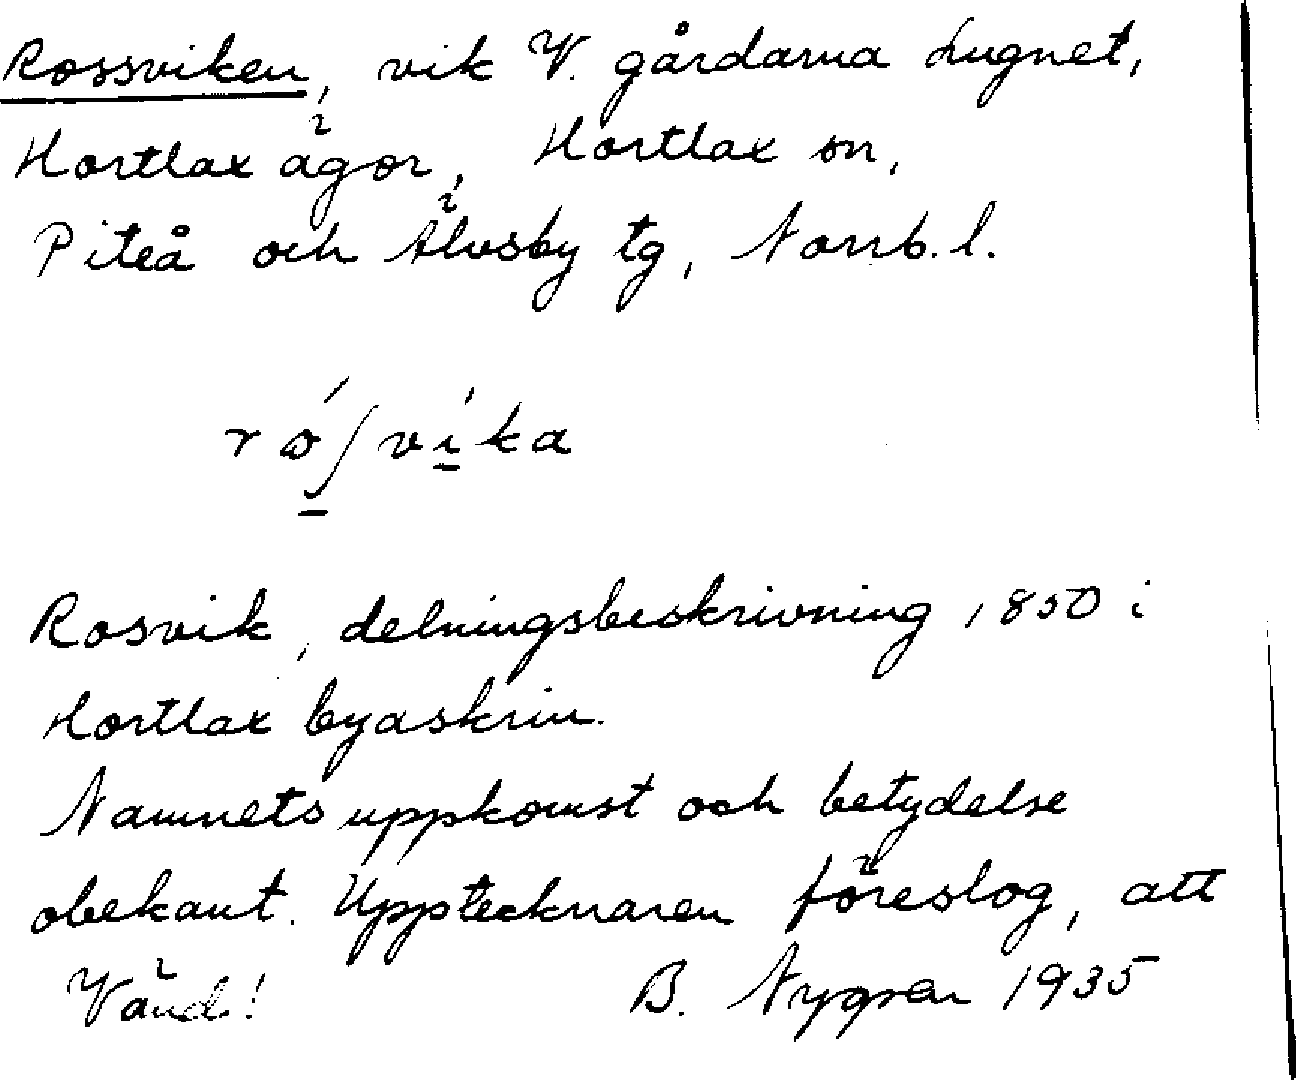 Rossviken, vik V. gårdarna Lugnet,
Hortlax ägor, Hortlax sn,
Piteå och Älvsby tg, Norrb. l.
róʃvíka
Rosvik, delningsbeskrivning 1850 i
Hortlax byaskrin.
Namnets uppkomst och betydelse
obekant. Upptecknaren föreslog, att
Vänd! B. Nygren 1935